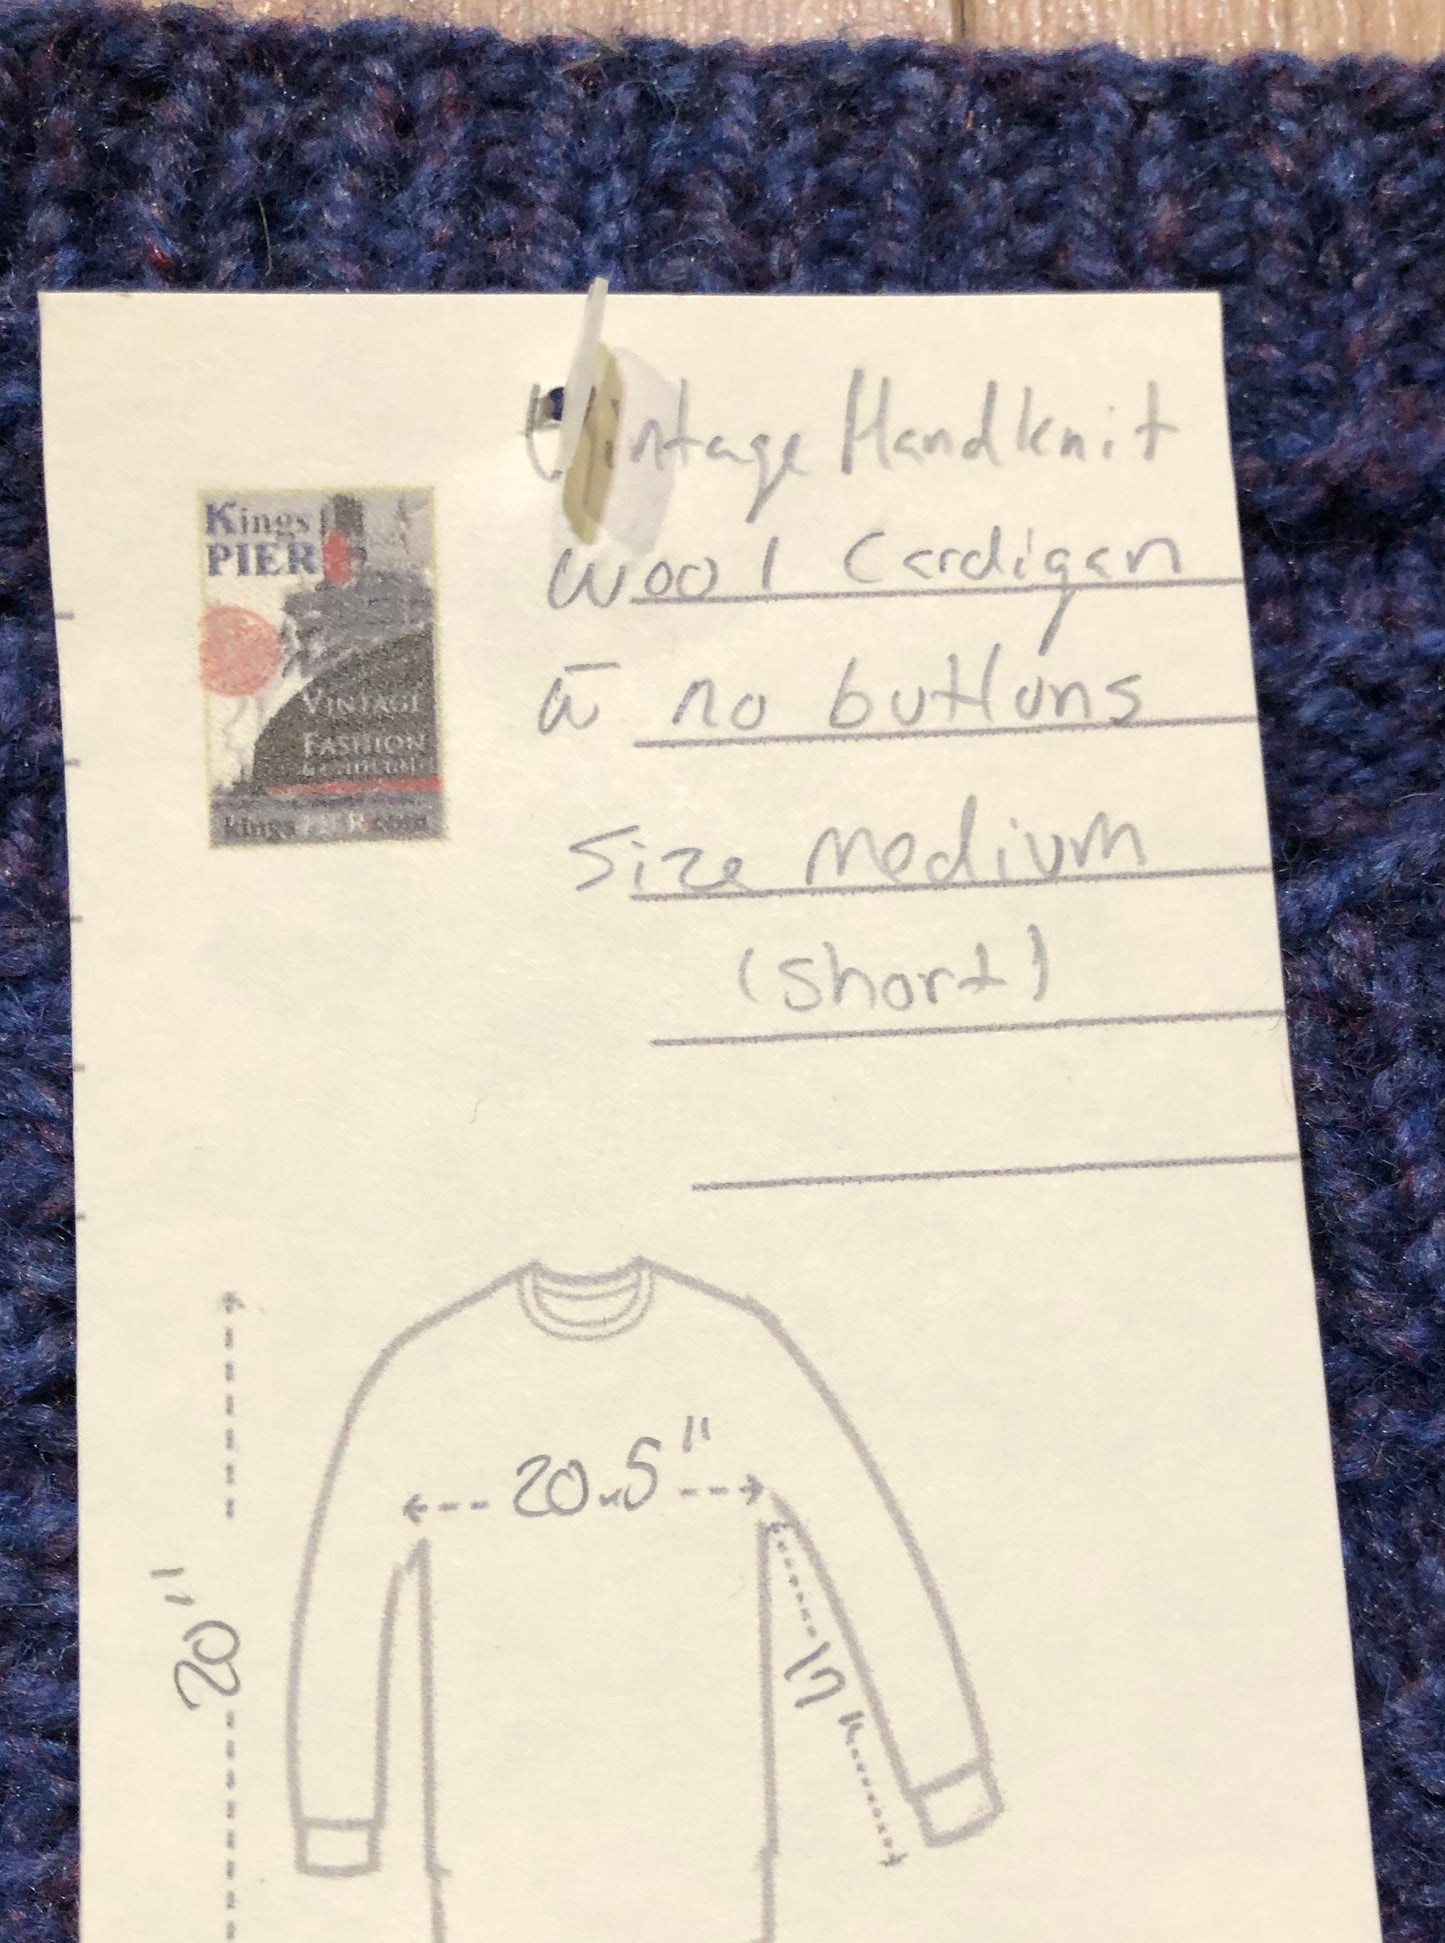 Vintage Handknit
wool Cardigan
w̄ no buttons
Size Medium
(short)
Kings
PIER
VINTAGE
FASHION
20.5"
20"
17"